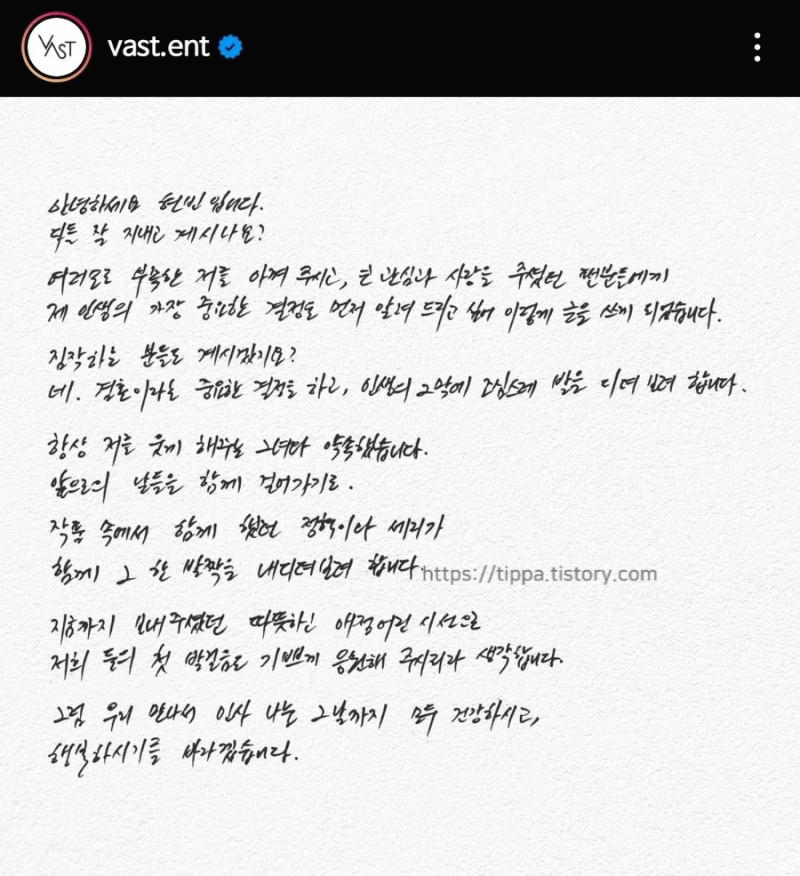 VAST
vast.ent
안녕하세요 현빈입니다.
다들 잘 지내고 계시나요?
여러모로 부족한 저를 아껴 주시고, 큰 관심과 사랑을 주셨던 팬분들에게
제 인생의 가장 중요한 결정을 먼저 알려 드리고 싶어 이렇게 글을 쓰게 되었습니다.
짐작하는 분들도 계시겠지요?
네. 결혼이라는 중요한 결정을 하고, 인생의 2막에 조심스레 발을 디뎌 보려 합니다.
항상 저를 웃게 해주는 그녀와 약속했습니다.
앞으로의 날들을 함께 걸어가기로.
작품 속에서 함께 했던 정혁이와 세리가
함께 그 한 발짝을 내디뎌보려 합니다.
https://tippa.tistory.com
지금까지 보내주셨던 따뜻하신 애정어린 시선으로
저희 둘의 첫 발걸음도 기쁘게 응원해 주시리라 생각합니다.
그럼 우리 만나서 인사 나눌 그날까지 모두 건강하시고,
행복하시기를 바라겠습니다.